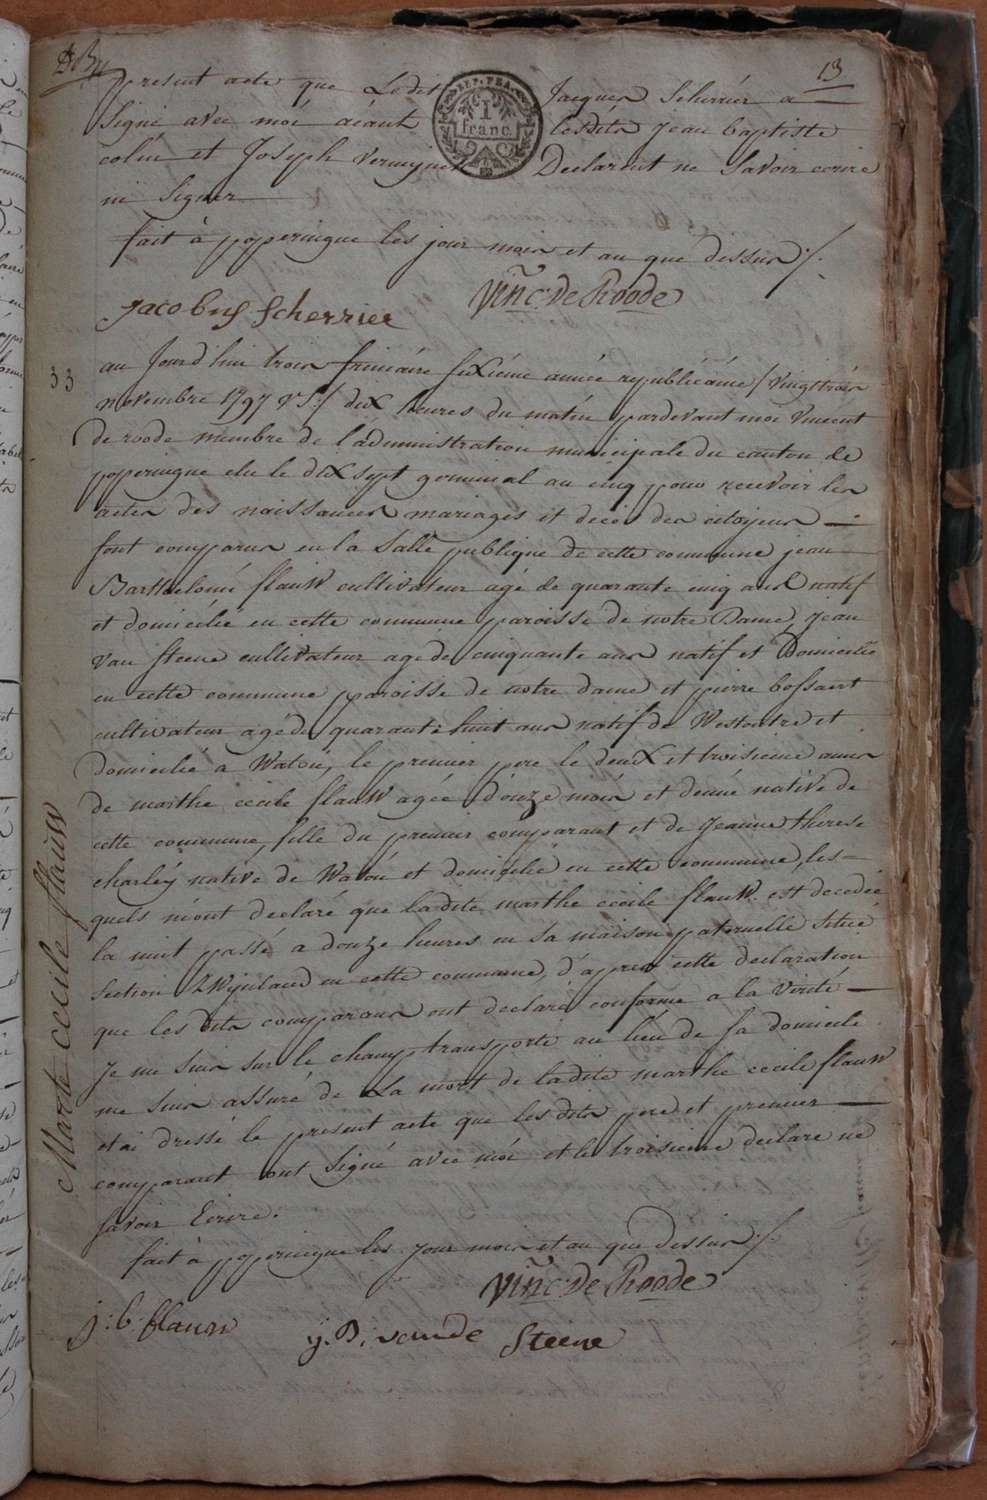 13
present acte que Ledit Jacques Scherrier a
Signé avec moi aiant lesdits jean baptiste
colin et Joseph vermeynen Declarent ne Savoir ecrire
ni Signer
fait à poperingue les jour mois et an que dessus ./.
REP. FRA.
1
franc.
Vinc: De Roode
Jacobus Scherrier
33
au Jourd'hui trois frimaire sixiéme année républicaine / vingttrois
novembre 1797 V:S:/ dix heures du matin pardevant moi Vincent
de roode membre de l'administration municipale du canton de
poperingue elu le dix sept germinal an cinq pour recevoir les
actes des naissances mariages et decés des citoyens —
sont comparus en la Salle publique de cette commune jean
Bartholomé flauw cultivateur agé de quarante cinq ans natif
et domicilié en cette commune paroisse de notre Dame, Jean
van steene cultivateur agé de cinquante ans natif et Domicilié
en cette commune paroisse de notre dame et pierre bossaert
cultivateur agé de quarante huit ans natif de Westoutre et
domicilié à Watou, le premier pere le deux et troisieme amis
de marthe cecile flauw agée d'ouze mois et demie native de
cette commune, fille du premier comparant et de Jeanne therese
charley native de Watou et domicilié en cette commune, les-
quels m'ont declaré que ladite marthe cecile flauw est decedée
la nuit passé a douze heures en sa maison paternelle Situé
section Zwynland en cette commune, d'apres cette declaration
que les dits comparans ont declaré conforme a la verité —
Je me suis sur le champ transporté au lieu de sa domicile
me suis assuré de La mort de ladite marthe cecile flauw
et ai dressé le present acte que lesdits pere et premier —
comparant ont Signé avec moi et le troisieme declare ne
savoir Ecrire.
fait à poperingue les jour mois et an que dessus ./.
Marte cecile flauw
Vinc: De Roode
j: b: flauw
y. B. vande Steene